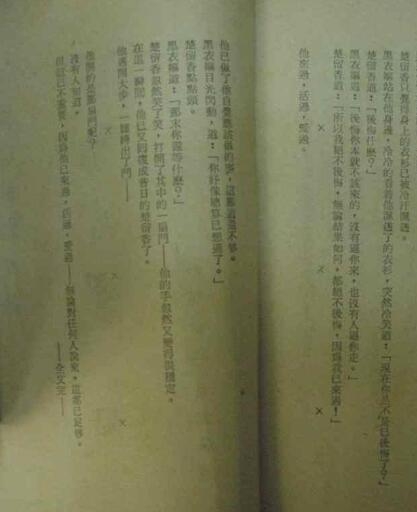 楚留香只覺得身上的衣衫已被冷汗濕透。
黑衣婦站在他身邊，冷冷的看著他濕透了的衣衫，突然冷笑道：「現在你是不是已後悔了？」
楚留香道：「後悔什麼？」
黑衣婦道：「後悔你本就不該來的，沒有逼你來，也沒有人逼你走。」
楚留香道：「所以我絕不後悔，無論結果如何，都絕不後悔，因為我已來過！」
他來過，活過，愛過。
他已做了他自覺應該做的事，這難道還不够。
黑衣婦目光閃動，道：「你好像總算已想通了。」
楚留香點點頭。
黑衣婦道：「那末你還等什麼？」
楚留香忽然笑了笑，打開了其中的一扇門——他的手忽然又變得很穩定。
在這一瞬間，他已又回復成昔日的楚留香了。
他邁開大步，一腳跨出了門——
他開的是那扇門呢？
沒有人知道。
但這已不重要，因為他已來過，活過，愛過——無論對任何人說來，這都已足够。
——全文完——